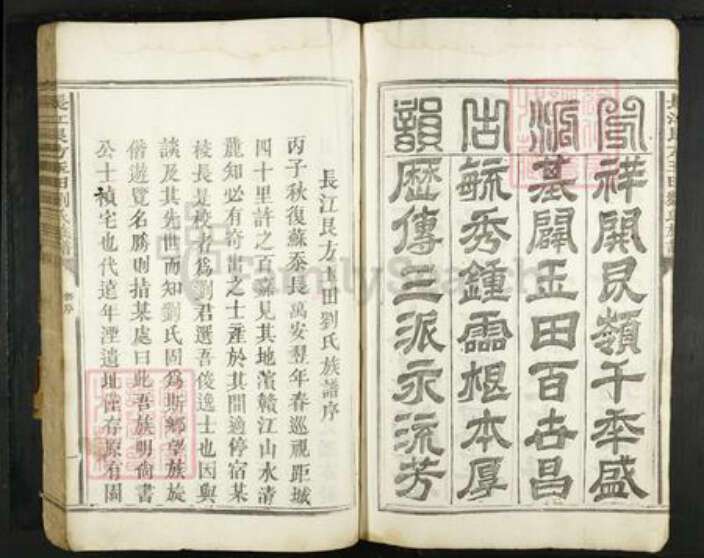 長江艮方玉田劉氏族譜
字派韻
祥開艮嶺千年盛
基闢玉田百世昌
毓秀鍾靈根本厚
歷傳三派永流芳
長江艮方玉田劉氏族譜序
丙子秋復蘇忝長萬安翌年春巡視距城
四十里許之百嘉見其地濱贛江山水清
麗知必有奇之士產於其間適停宿某
校長是校者爲劉君選吾俊逸士也因與
談及其先世而知劉氏固爲斯鄉望族旋
偕遊覽名勝則指某處曰此吾族明尙書
公士禎宅也代遠年湮遺址僅存原有園
長江艮方玉田劉氏族譜
FamilySearch